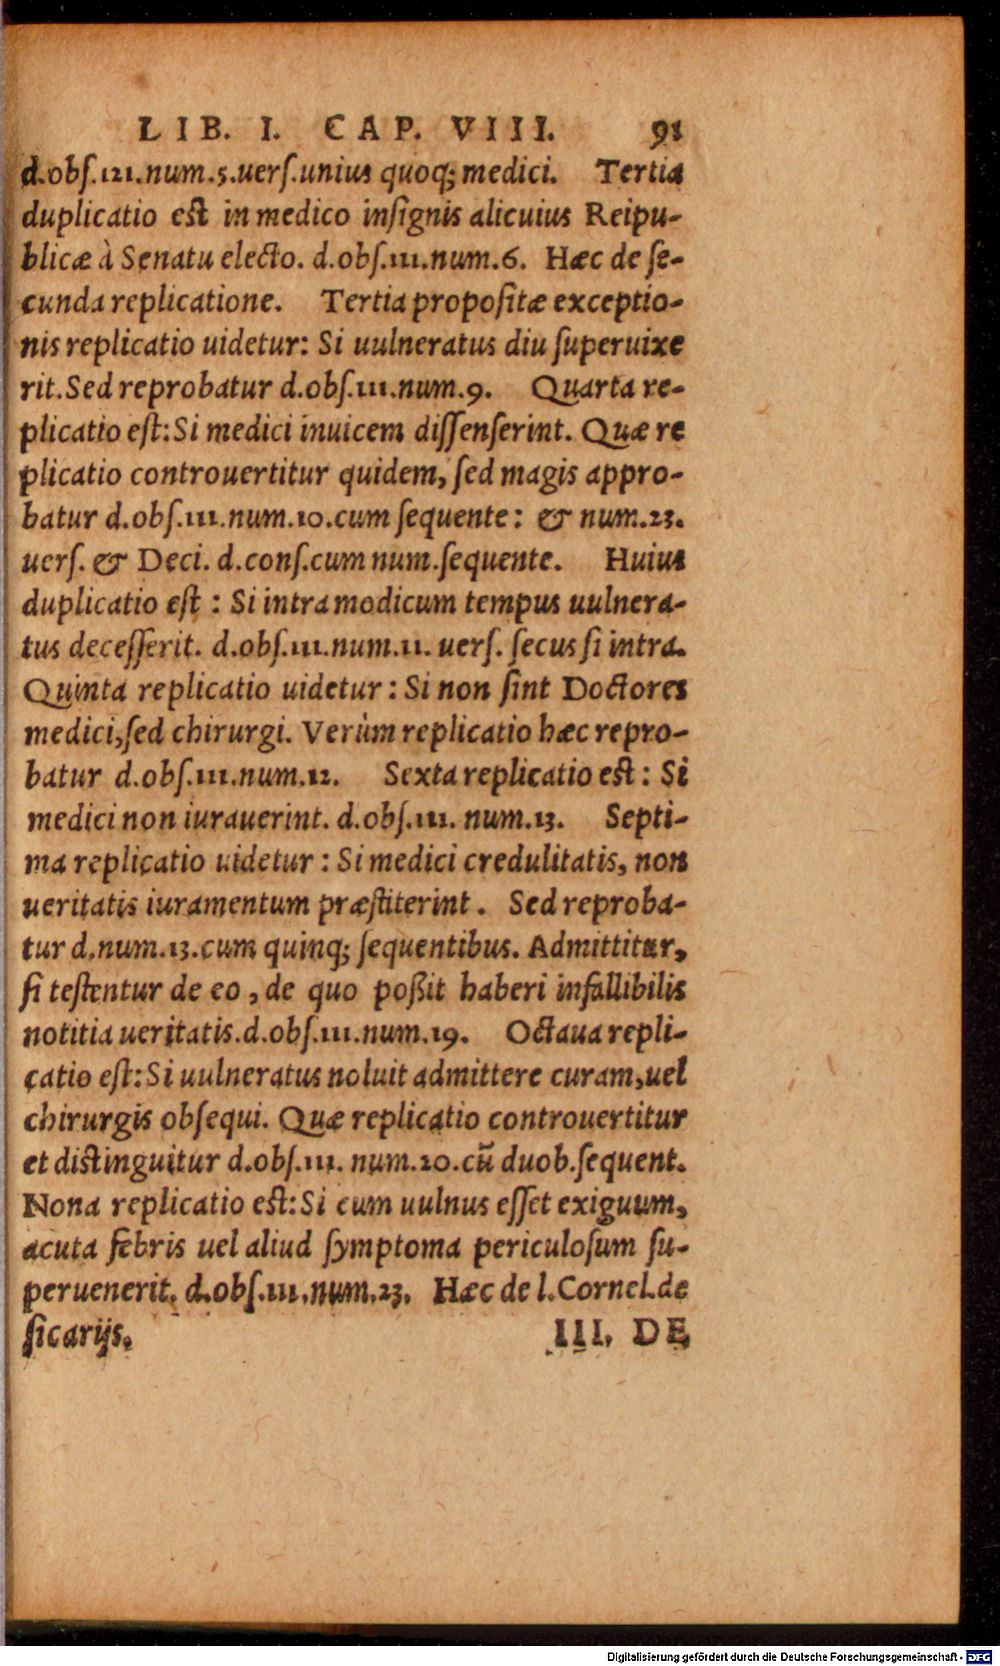 LIB. I. CAP. VIII. 91
d.obſ.111.num.5.uerſ.unius quoq; medici. Tertia
duplicatio est in medico inſignis alicuius Reipu-
blicæ à Senatu electo. d.obſ.111.num.6. Hæc de ſe-
cunda replicatione. Tertia propoſitæ exceptio-
nis replicatio uidetur: Si uulneratus diu ſuperuixe
rit. Sed reprobatur d.obſ.111.num.9. Quarta re-
plicatio eſt: Si medici inuicem diſſenſerint. Quæ re
plicatio controuertitur quidem, ſed magis appro-
batur d.obſ.111.num.10.cum ſequente: & num.23.
uerſ. & Deci. d.conſ.cum num.ſequente. Huius
duplicatio eſt : Si intra modicum tempus uulnera-
tus deceſſerit. d.obſ.111.num.11. uerſ. ſecus ſi intra.
Quinta replicatio uidetur : Si non ſint Doctores
medici, ſed chirurgi. Verùm replicatio hæc repro-
batur d.obſ.111.num.12. Sexta replicatio eſt : Si
medici non iurauerint. d.obſ.111. num.13. Septi-
ma replicatio uidetur : Si medici credulitatis, non
ueritatis iuramentum præſtiterint . Sed reproba-
tur d.num.13.cum quinq; ſequentibus. Admittitur,
ſi teſtentur de eo , de quo poßit haberi infallibilis
notitia ueritatis.d.obſ.111.num.19. Octaua repli-
catio eſt: Si uulneratus noluit admittere curam, uel
chirurgis obſequi. Quæ replicatio controuertitur
et distinguitur d.obſ.111. num.20.cũ duob.ſequent.
Nona replicatio est: Si cum uulnus eſſet exiguum,
acuta febris uel aliud ſymptoma periculoſum ſu-
peruenerit. d.obſ.111.num.23. Hæc de l.Cornel.de
ſicarijs. III. DE
Digitalisierung gefördert durch die Deutsche Forschungsgemeinschaft - DFG